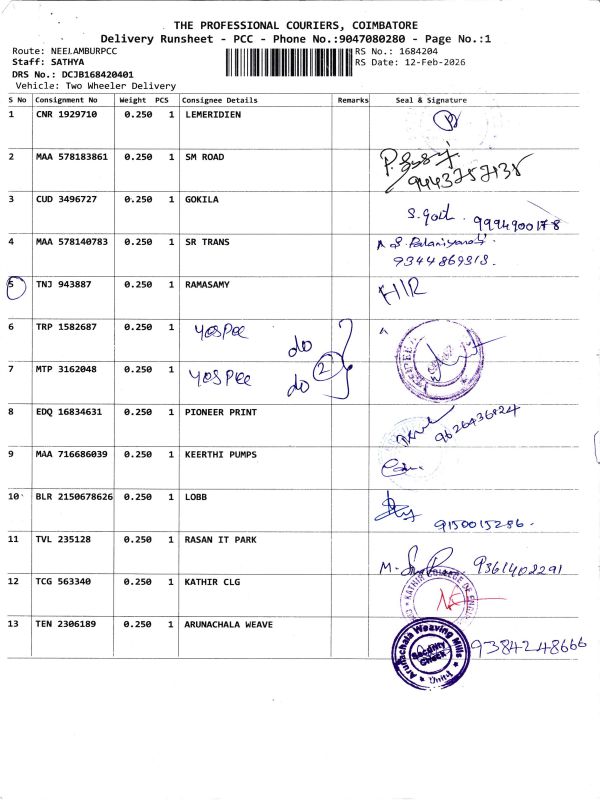 THE PROFESSIONAL COURIERS, COIMBATORE
Delivery Runsheet - PCC - Phone No.:9047080280 - Page No.:1
Route: NEELAMBURPCC RS No.: 1684204
Staff: SATHYA RS Date: 12-Feb-2026
DRS No.: DCJB168420401
Vehicle: Two Wheeler Delivery
S No Consignment No Weight PCS Consignee Details Remarks Seal & Signature
1 CNR 1929710 0.250 1 LEMERIDIEN
2 MAA 578183861 0.250 1 SM ROAD
9443757138
3 CUD 3496727 0.250 1 GOKILA
9994900178
4 MAA 578140783 0.250 1 SR TRANS
9344869313.
5 TNJ 943887 0.250 1 RAMASAMY
H/R
6 TRP 1582687 0.250 1 YOSPEE do
2
7 MTP 3162048 0.250 1 YOSPEE do
8 EDQ 16834631 0.250 1 PIONEER PRINT
9626436824
9 MAA 716686039 0.250 1 KEERTHI PUMPS
10 BLR 2150678626 0.250 1 LOBB
9150015286.
11 TVL 235128 0.250 1 RASAN IT PARK
9361402291
12 TCG 563340 0.250 1 KATHIR CLG
KATHIR COLLEGE OF
13 TEN 2306189 0.250 1 ARUNACHALA WEAVE
Arunachala Weaving Mills
Security Check
Unit-I
9384248666